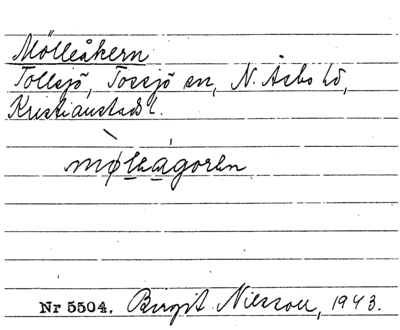 Mölleåkern
Tollsjö, Tossjö sn, N. Åsbo hd,
Kristianstads l.
mø̀lɛágorɛn
Nr 5504. Birgit Nilsson, 1943.